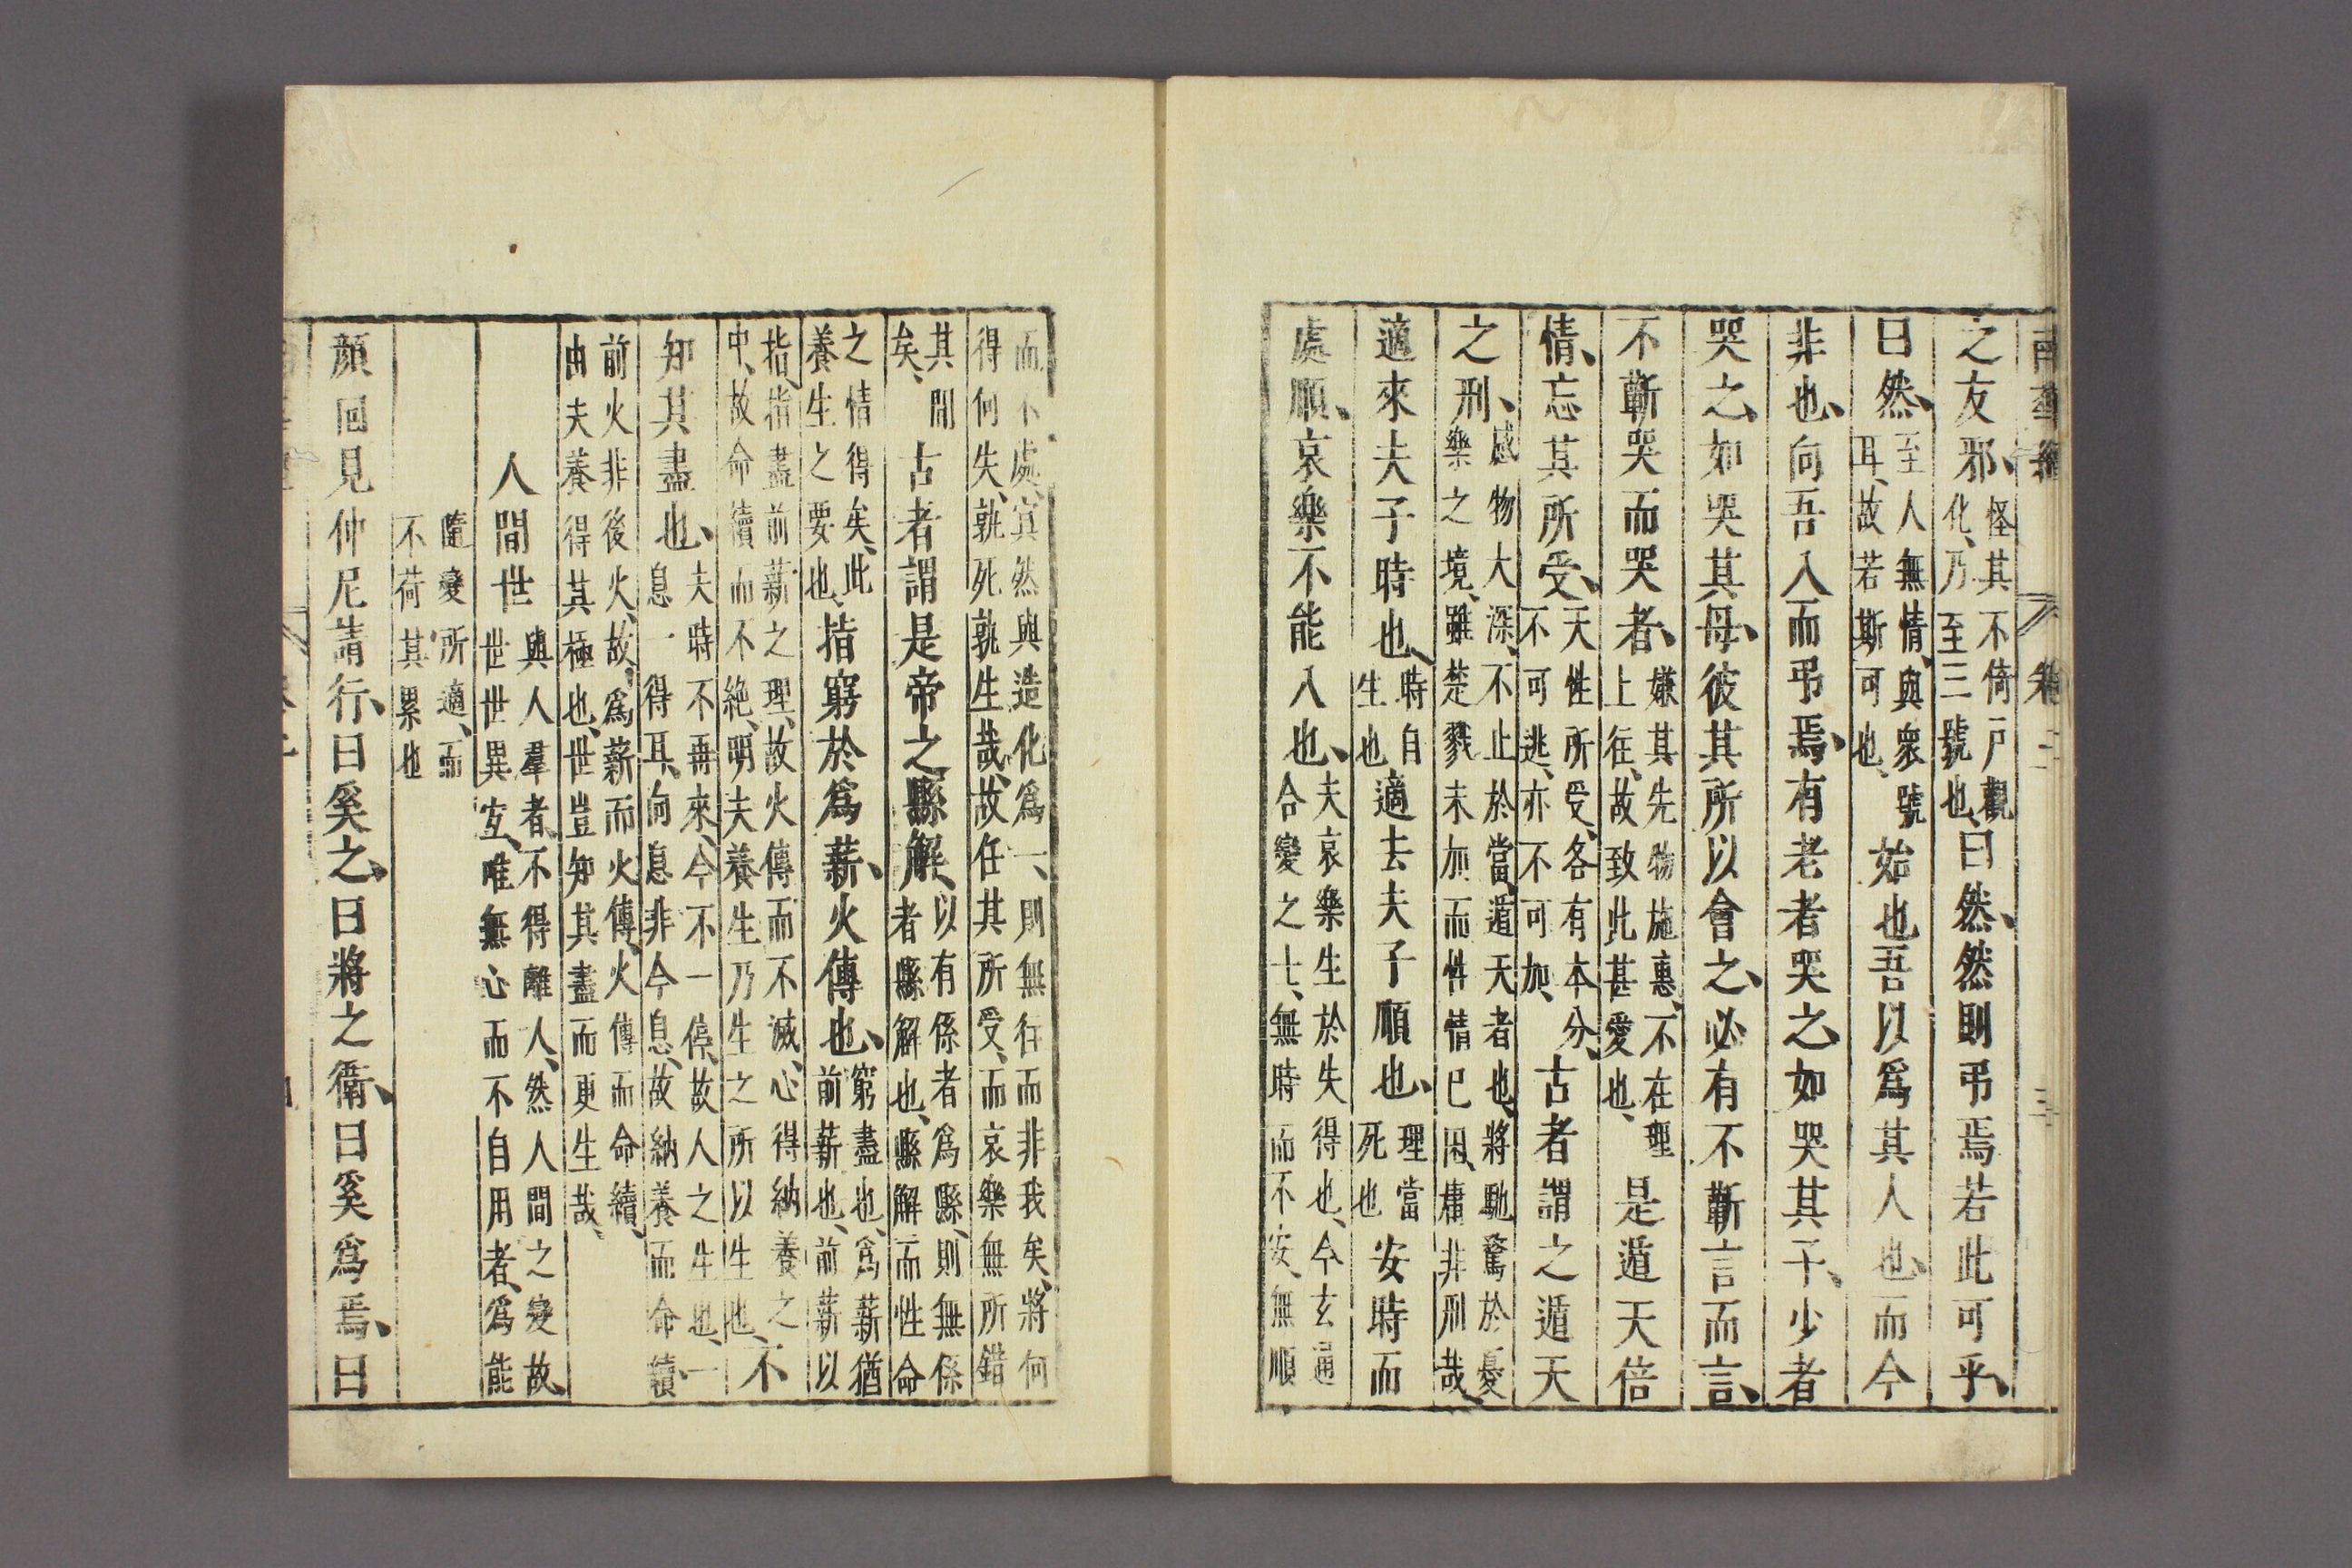 南華經 卷二 三
之友邪、怪其不倚戶觀化、乃至三號也、曰然、然則弔焉若此可乎、
曰然、至人無情、與衆號耳、故若斯可也、始也吾以爲其人也、而今
非也、向吾入而弔焉、有老者哭之如哭其子、少者
哭之、如哭其母、彼其所以會之、必有不蘄言而言、
不蘄哭而哭者、嫌其先物施惠、不在理上往、故致此甚愛也、是遁天倍
情、忘其所受、天性所受、各有本分、不可逃、亦不可加、古者謂之遁天
之刑、感物大深、不止於當、遁天者也、將馳騖於憂樂之境、雖楚戮未加而性情已困、庸非刑哉、
適來夫子時也、時自生也適去夫子順也、理當死也安時而
處順、哀樂不能入也、夫哀樂生於失得也、今玄通合變之士、無時而不安、無順
而不處、冥然與造化爲一、則無往而非我矣、將何得何失、孰死孰生哉、故任其所受、而哀樂無所錯
其間矣、古者謂是帝之縣解、以有係者爲縣、則無係者縣解也、縣解而性命
之情得矣、此養生之要也、指窮於爲薪、火傳也、窮盡也、爲薪猶前薪也、前薪以
指、指盡前薪之理、故火傳而不滅、心得納養之中、故命續而不絕、明夫養生乃生之所以生也、不
知其盡也、夫時不再來、今不一停、故人之生也、一息一得耳、向息非今息、故納養而命續、
前火非後火、故爲薪而火傳、火傳而命續、由夫養得其極也、世豈知其盡而更生哉、
人間世 與人羣者、不得離人、然人間之變故、世世異宜、唯無心而不自用者、爲能
隨變所適、而不荷其累也
顏回見仲尼請行、曰奚之、曰將之衛、曰奚爲焉、曰